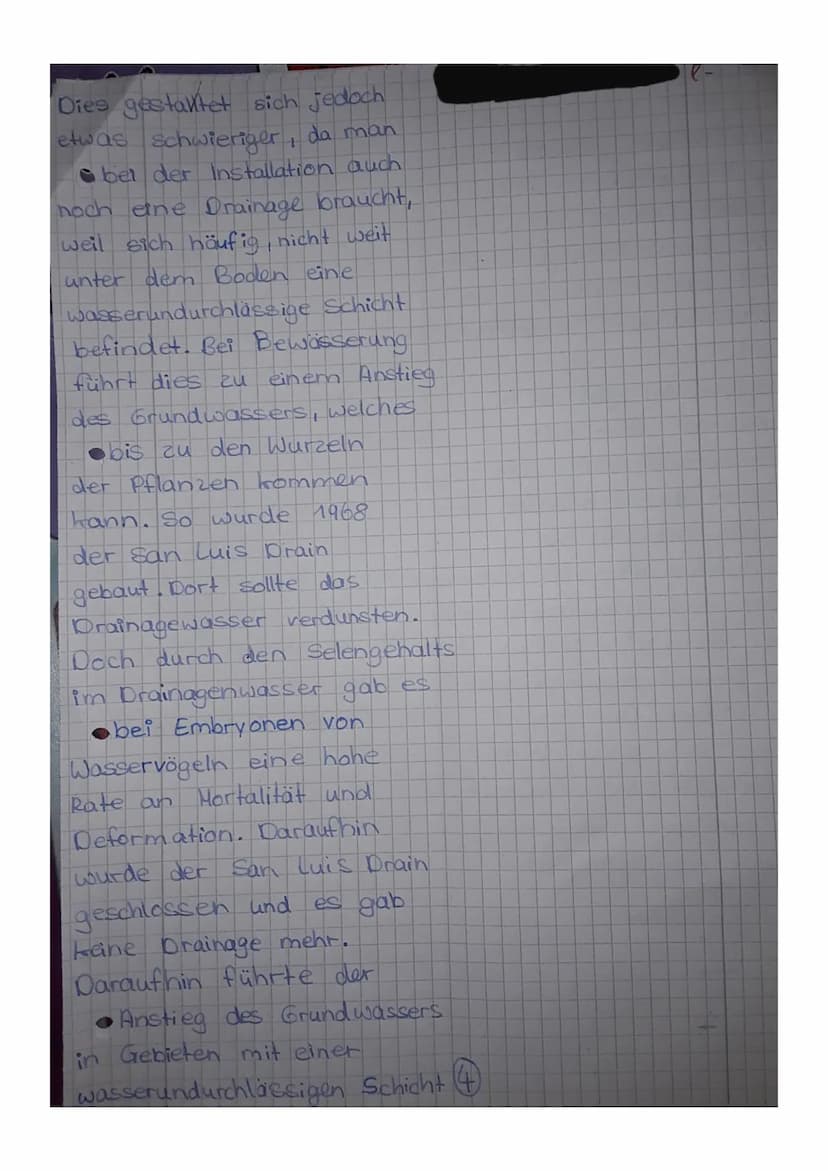 Dies gestaltet sich jedoch
etwas schwieriger, da man
bei der Installation auch
noch eine Drainage braucht,
weil sich häufig, nicht weit
unter dem Boden eine
wasserundurchlässige Schicht
befindet. Bei Bewässerung
führt dies zu einem Anstieg
des Grundwassers, welches
bis zu den Wurzeln
der Pflanzen kommen
kann. So wurde 1968
der San Luis Drain
gebaut. Dort sollte das
Drainagewasser verdunsten.
Doch durch den Selengehalts
im Drainagenwasser gab es
bei Embryonen von
Wasservögeln eine hohe
Rate an Mortalität und
Deformation. Daraufhin
wurde der San Luis Drain
geschlossen und es gab
keine Drainage mehr.
Daraufhin führte der
Anstieg des Grundwassers
in Gebieten mit einer
wasserundurchlässigen Schicht 4